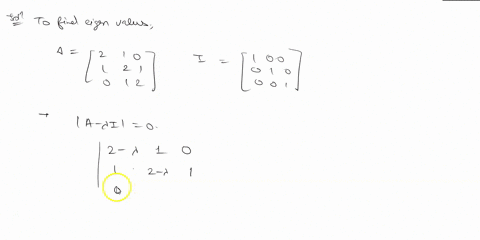 Sol⁰ To find eigen values,
A = [ 2 1 0      I = [ 1 0 0
1 2 1      0 1 0
0 1 2 ]      0 0 1 ]
→ |A-λI| = 0.
| 2-λ 1 0
1 2-λ 1
0